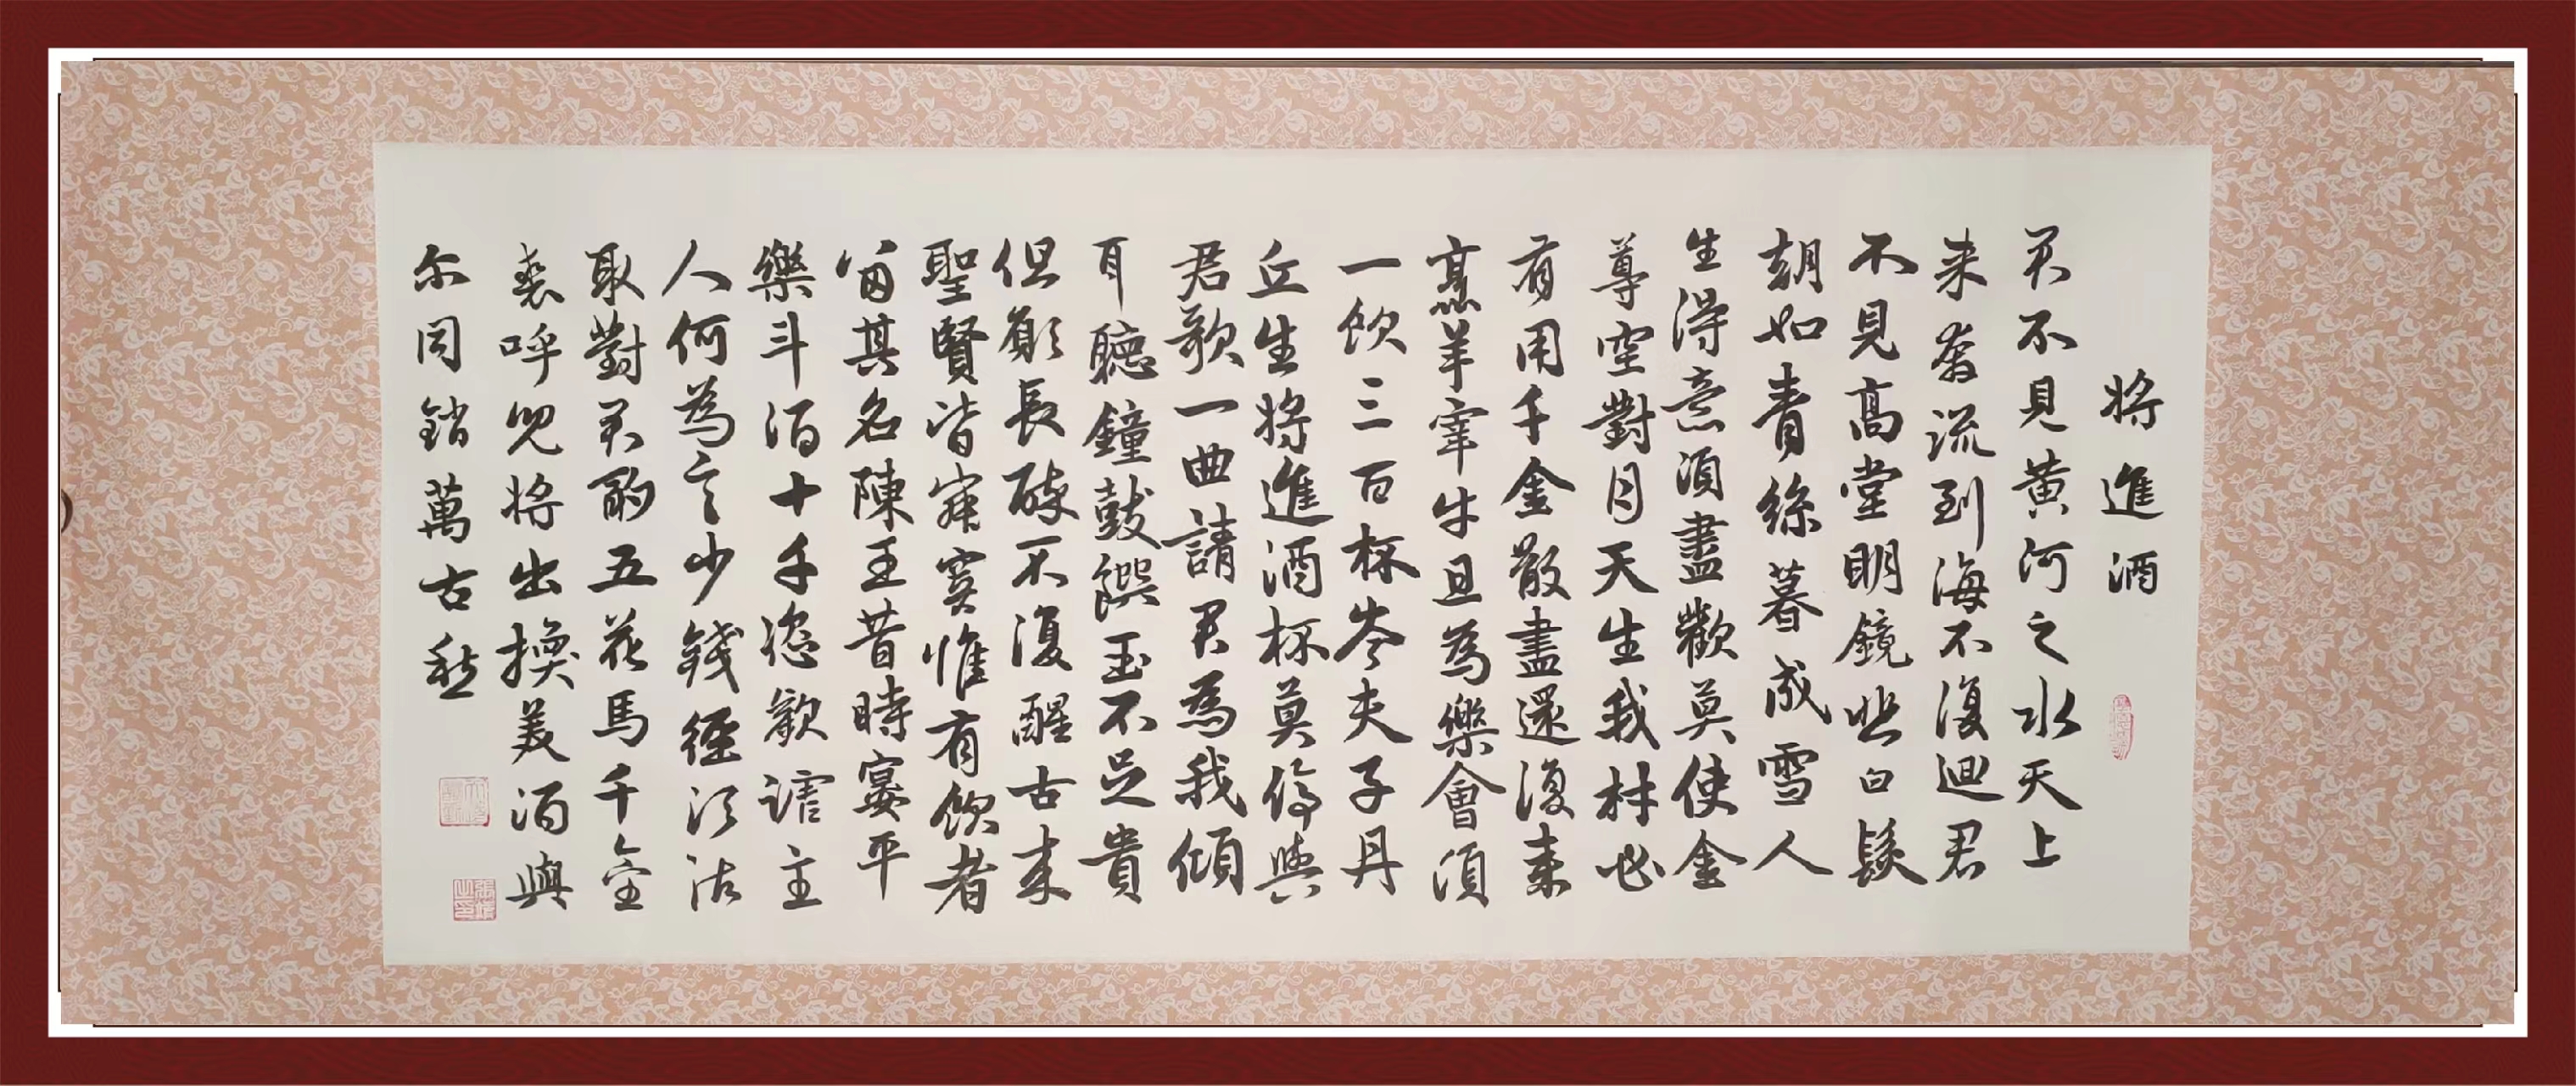 將進酒
君不見黄河之水天上
来奔流到海不復迴君
不見高堂明鏡悲白髮
朝如青絲暮成雪人
生得意須盡歡莫使金
尊空對月天生我材必
有用千金散盡還復来
烹羊宰牛且為樂會須
一飲三百杯岑夫子丹
丘生將進酒杯莫停與
君歌一曲請君為我傾
耳聽鐘鼓饌玉不足貴
但願長醉不復醒古来
聖賢皆寂寞惟有飲者
留其名陳王昔時宴平
樂斗酒十千恣歡謔主
人何為言少錢徑須沽
取對君酌五花馬千金
裘呼兒將出換美酒與
尔同銷萬古愁